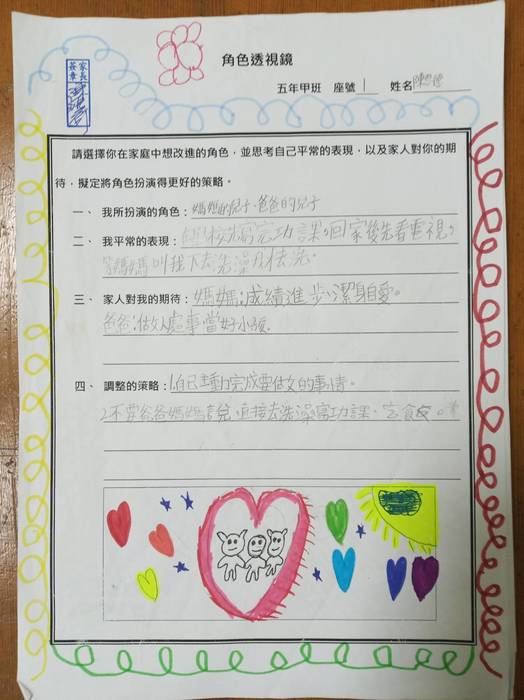 角色透視鏡
家長
簽章
五年甲班 座號 1 姓名 陳
請選擇你在家庭中想改進的角色，並思考自己平常的表現，以及家人對你的期
待，擬定將角色扮演得更好的策略。
一、 我所扮演的角色：媽媽的兒子、爸爸的兒子
二、 我平常的表現：學校先寫完功課。回家後先看電視。
等媽媽叫我下去洗澡才去洗。
三、 家人對我的期待：媽媽:成績進步、潔身自愛。
爸爸:做人處事、當好小孩。
四、 調整的策略：1.自己主動完成要做的事情。
2.不要爸爸媽媽說，直接去洗澡寫功課、吃飯。